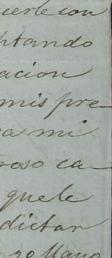 cerle con
ptando
racion
mis pre
a mi
roso ca
que le
dictar